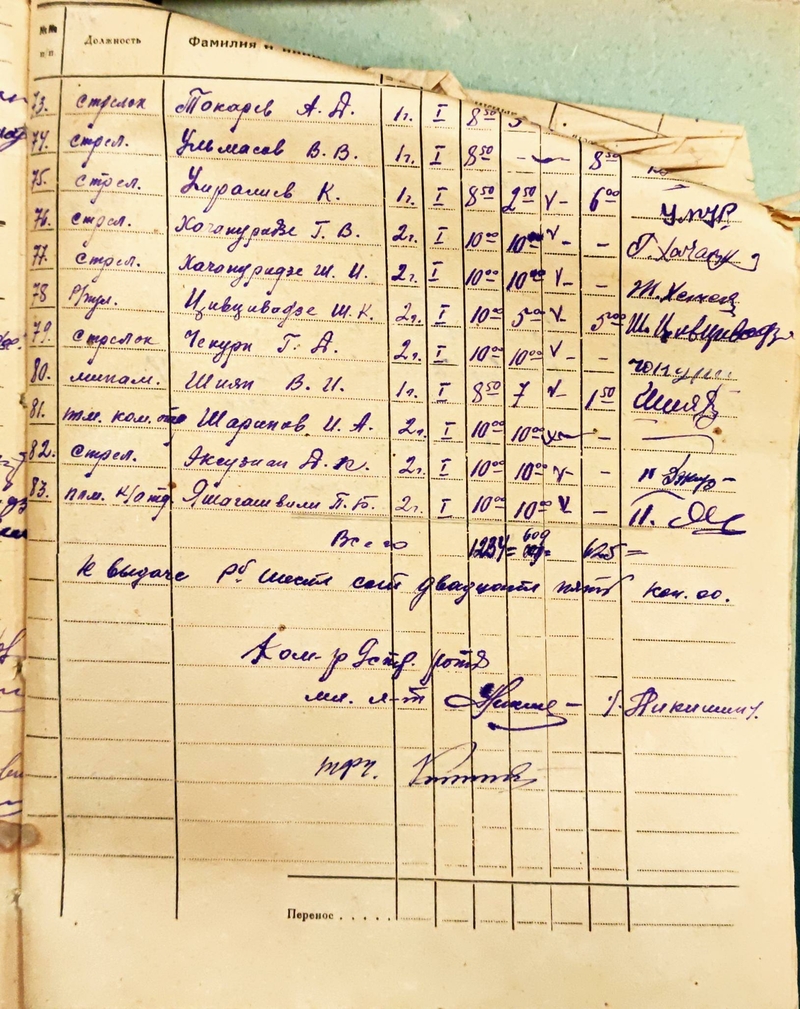 №№ п/п Должность Фамилия и
73. стрелок Токарев А. Д. 1г. I 8 50 5
74. стрел. Ульмасов В. В. 1г. I 8 50 - 8 50
75. стрел. Умралиев К. 1г. I 8 50 2 50 V - 6 00 УМУР.
76. стрел. Хачапуридзе Г. В. 2г. I 10 00 10 00 V - -
77. стрел. Хачапуридзе Ш. И. 2г. I 10 00 10 00 V - -
78 Р/пул. Цивцивадзе Ш. К. 2г. I 10 00 5 00 V - 5 00 Ш. Цивцивадзе
79. стрелок Чекури Г. Д. 2г. I 10 00 10 00 V - -
80. мипам. Шиян В. И. 1г. I 8 50 7 V - 1 50 Шиян
81. пм. ком. отд Шарипов И. А. 2г. I 10 00 10 00 V - -
82. стрел. Экузиан А. К. 2г. I 10 00 10 00 V - -
83. пм. к/отд. Яшагашвили П. Б. 2г. I 10 00 10 00 V - П.
Всего 1234= 609 625=
К выдаче Рб шесть сот двадцать пять коп. оо.
Ком-р 9 стр. роты
мл. л-т /Никишин/.
Перенос . . . . .